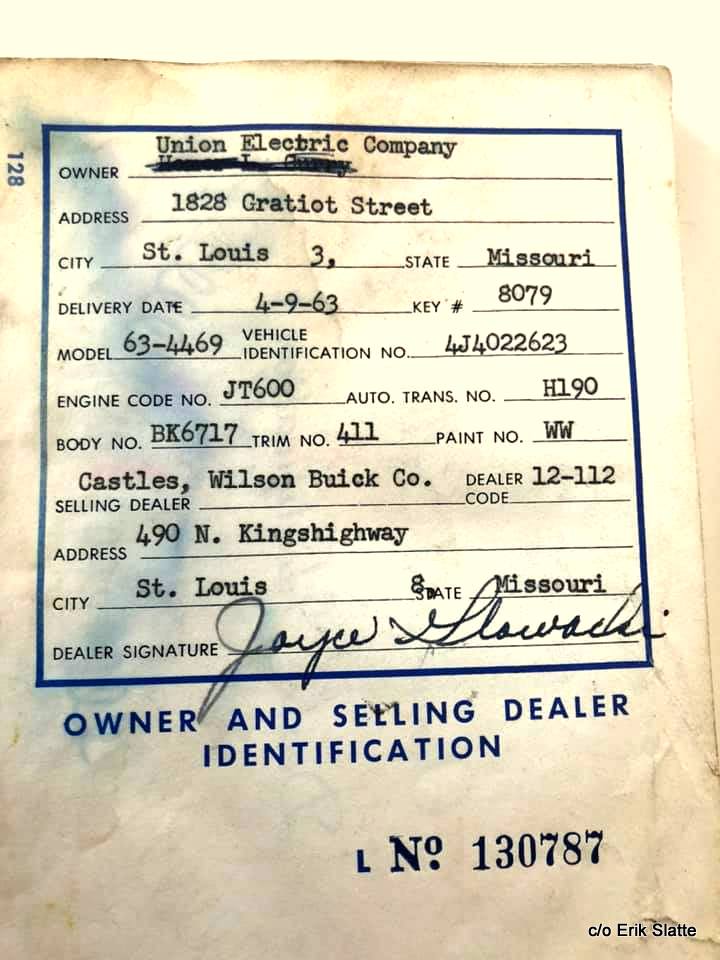 128
Union Electric Company
OWNER
ADDRESS 1828 Gratiot Street
CITY St. Louis 3, STATE Missouri
DELIVERY DATE 4-9-63 KEY # 8079
MODEL 63-4469 VEHICLE IDENTIFICATION NO. 4J4022623
ENGINE CODE NO. JT600 AUTO. TRANS. NO. H190
BODY NO. BK6717 TRIM NO. 411 PAINT NO. WW
SELLING DEALER Castles, Wilson Buick Co. DEALER CODE 12-112
ADDRESS 490 N. Kingshighway
CITY St. Louis 8, STATE Missouri
DEALER SIGNATURE Joyce
OWNER AND SELLING DEALER
IDENTIFICATION
L Nº 130787
c/o Erik Slatte